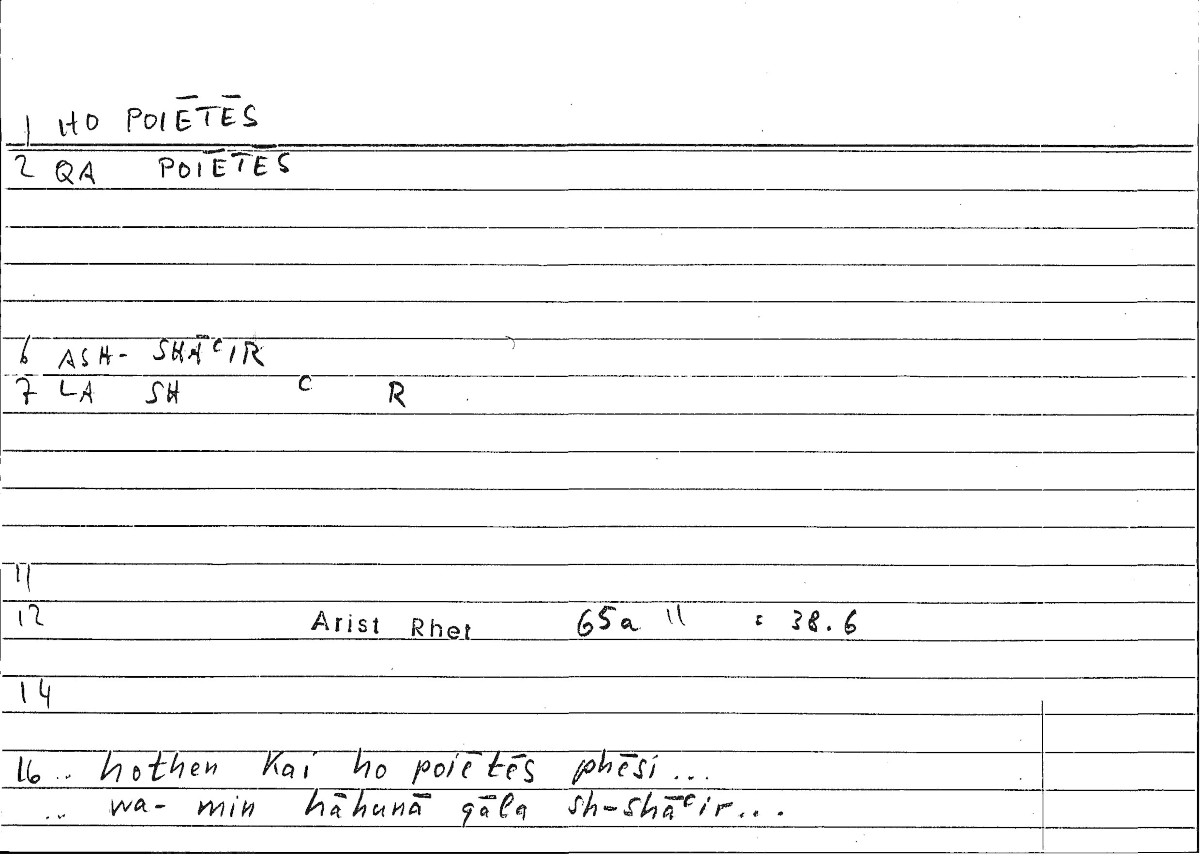 1 HO POIĒTĒS
2 QA POIĒTĒS
6 ASH- SHĀᶜIR
7 LA SH ᶜ R
11
12 Arist Rhet 65a 11 : 38.6
14
16 .. hothen kai ho poiētēs phēsi ...
.. wa- min hāhunā qāla sh-shāᶜir ...